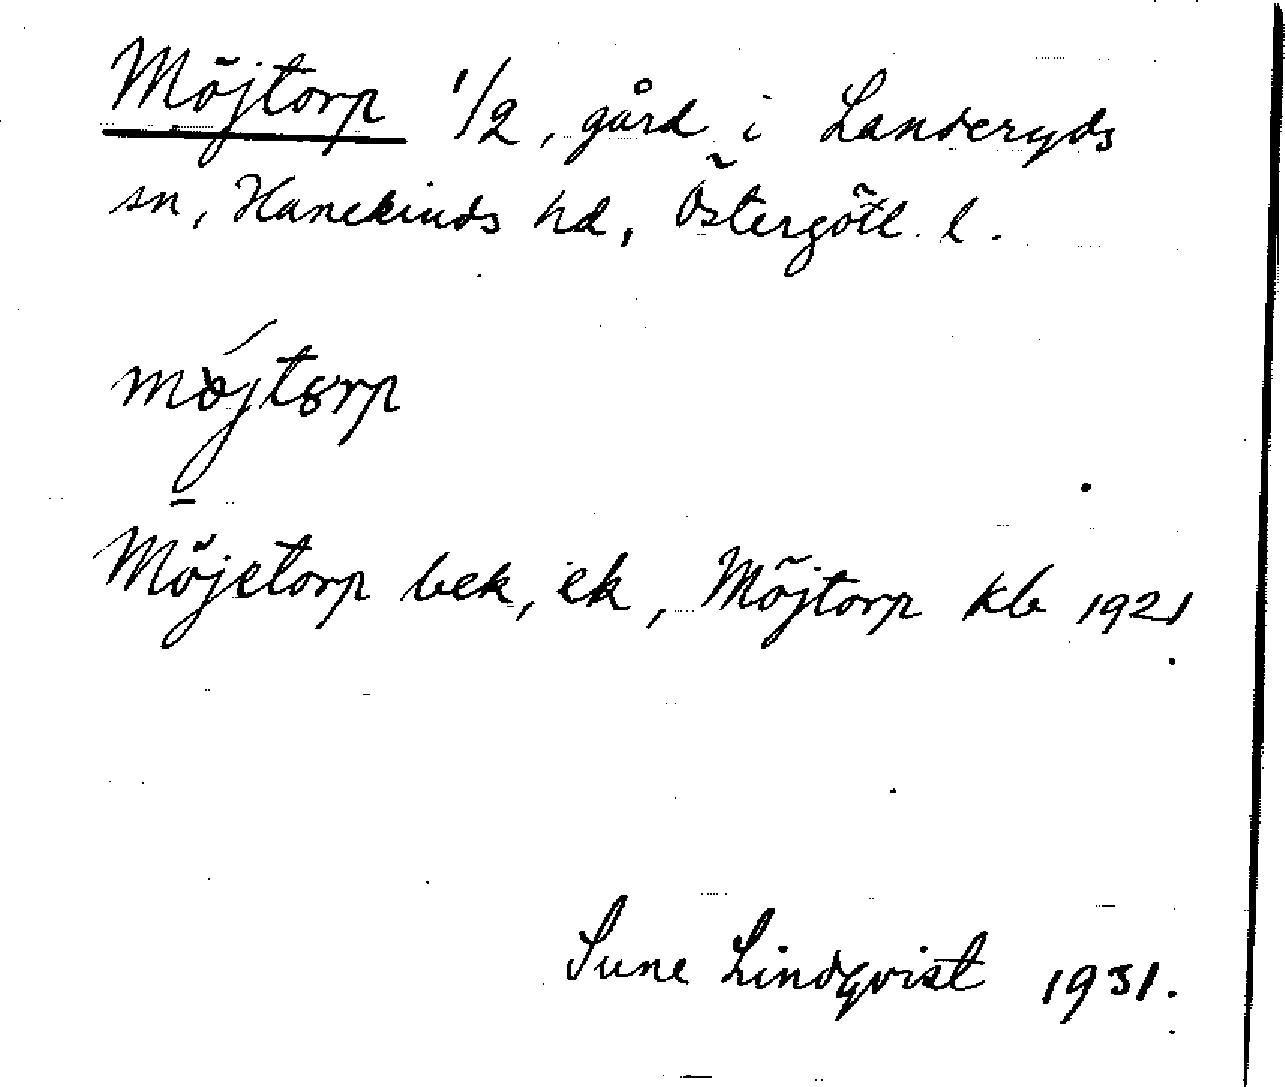 Möjtorp 1/2, gård i Landeryds
sn, Hanekinds hd, Östergötl. l.
møjtorp
Möjetorp bek, ek, Möjtorp kb 1921
Sune Lindqvist 1931.